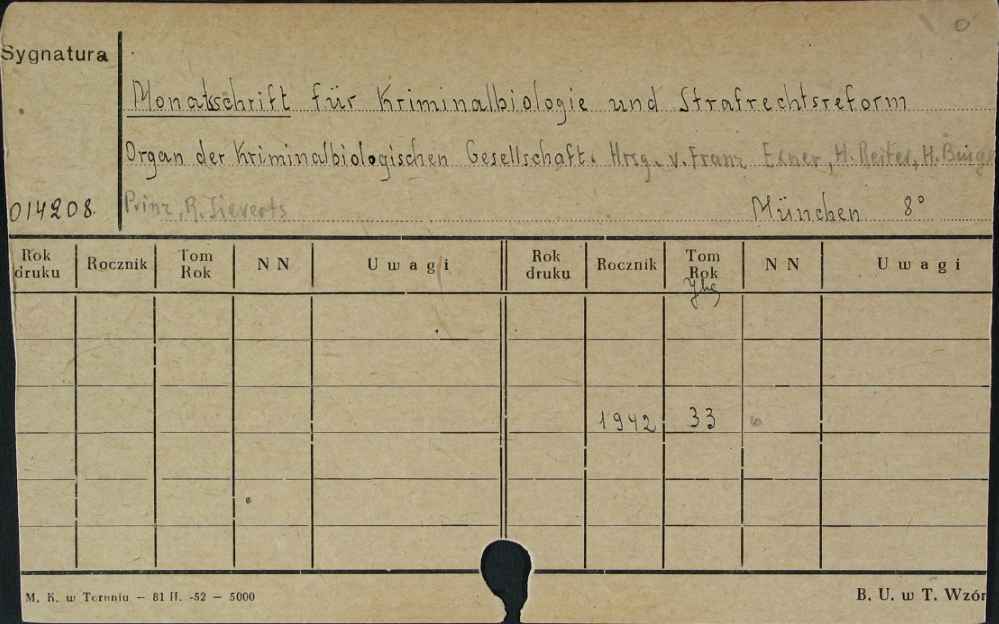 0
Sygnatura
Monatsschrift für Kriminalbiologie und Strafrechtsreform
Organ der Kriminalbiologischen Gesellschaft. Hrsg. v. Franz Exner, H. Reiter, H. Bürger
014208. Prinz, R. Sieverts München 8°
Rok druku Rocznik Tom Rok N N Uwagi Rok druku Rocznik Tom Rok N N Uwagi
Jhg
1942 33 6
M. K. w Toruniu — 81 II. -52 — 5000 B. U. w T. Wzór